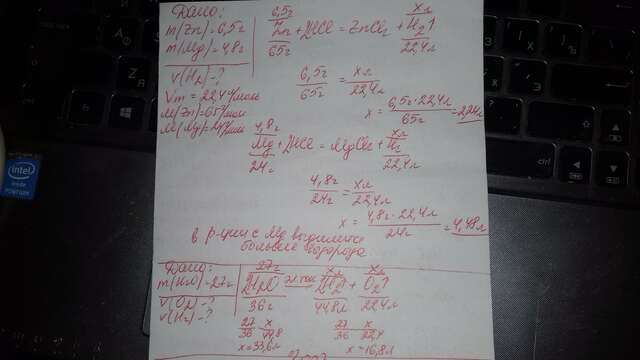 Дано:
m(Zn)=6,5г
m(Mg)=4,8г
V(H₂)-?
Vm=22,4л/моль
M(Zn)=65г/моль
M(Mg)=24г/моль
6,5г xл
Zn+2HCl=ZnCl₂+H₂↑
65г 22,4л
6,5г/65г=xл/22,4л
x=6,5г·22,4л/65г=2,24л
4,8г xл
Mg+2HCl=MgCl₂+H₂
24г 22,4л
4,8г/24г=xл/22,4л
x=4,8г·22,4л/24г=4,48л
в р-ции с Mg выделится
больше водорода
Дано:
m(H₂O)=27г
V(O₂)-?
V(H₂)-?
27г xл xл
2H₂O эл.ток 2H₂+O₂↑
36г 44,8л 22,4л
27/36 x/44,8 27/36 x/22,4
x=33,6л x=16,8л
intel
inside